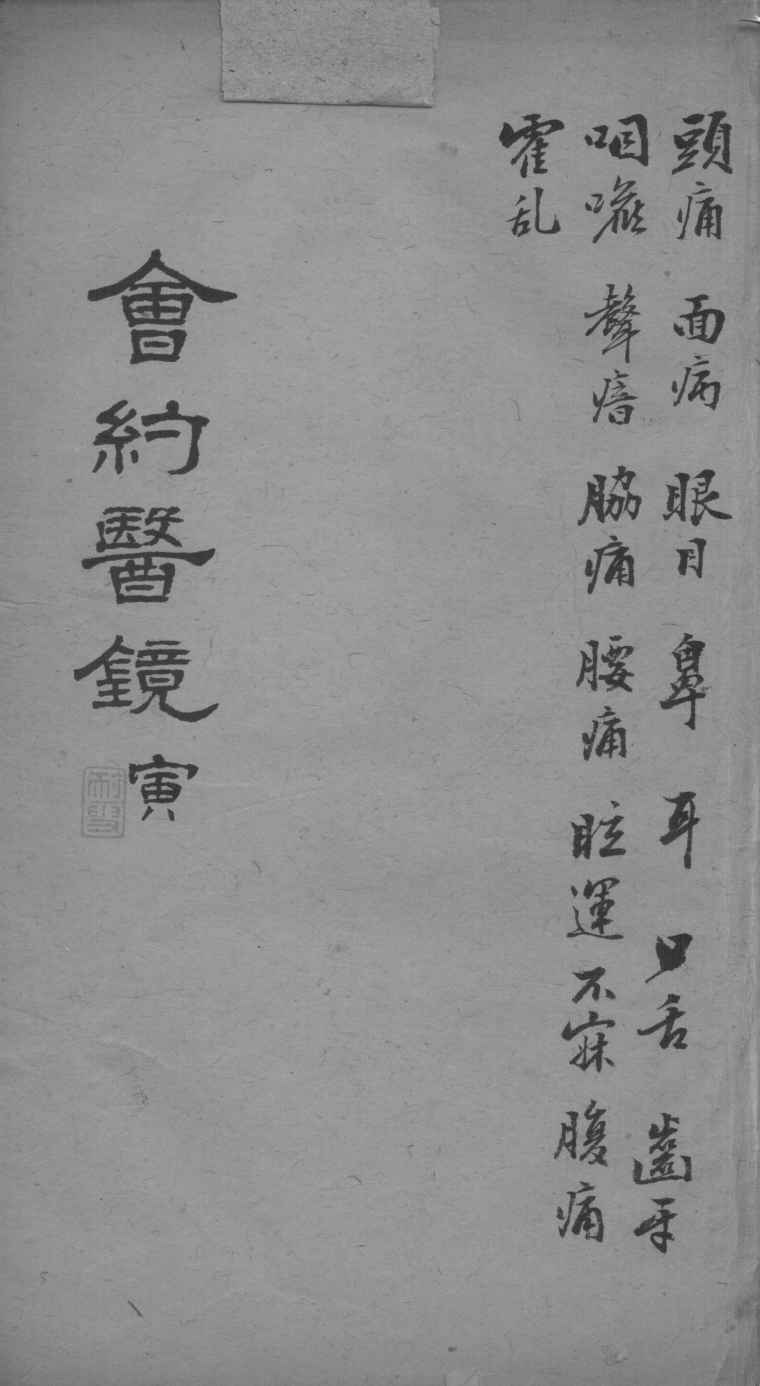 頭痛 面病 眼目 鼻 耳 口舌 齒牙
咽喉 聲瘖 脇痛 腰痛 眩運 不寐 腹痛
霍乱
會約醫鏡 寅